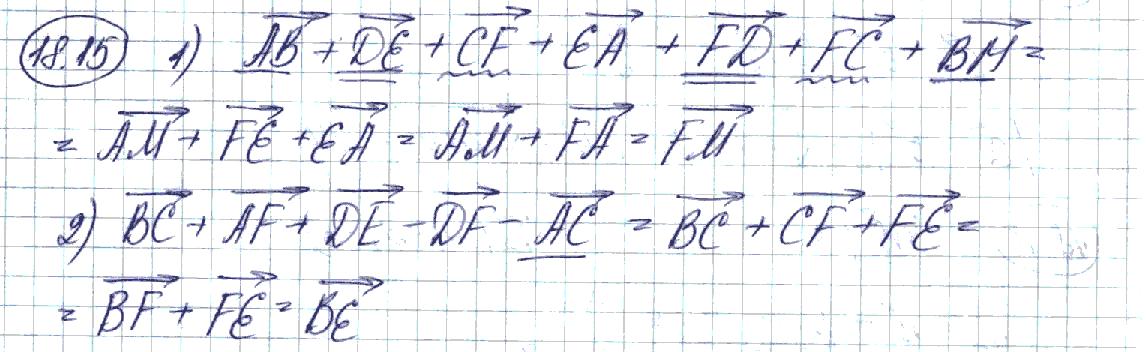 18.15 1) AB + DE + CF + EA + FD + FC + BM =
= AM + FE + EA = AM + FA = FM
2) BC + AF + DE - DF - AC = BC + CF + FE =
= BF + FE = BE